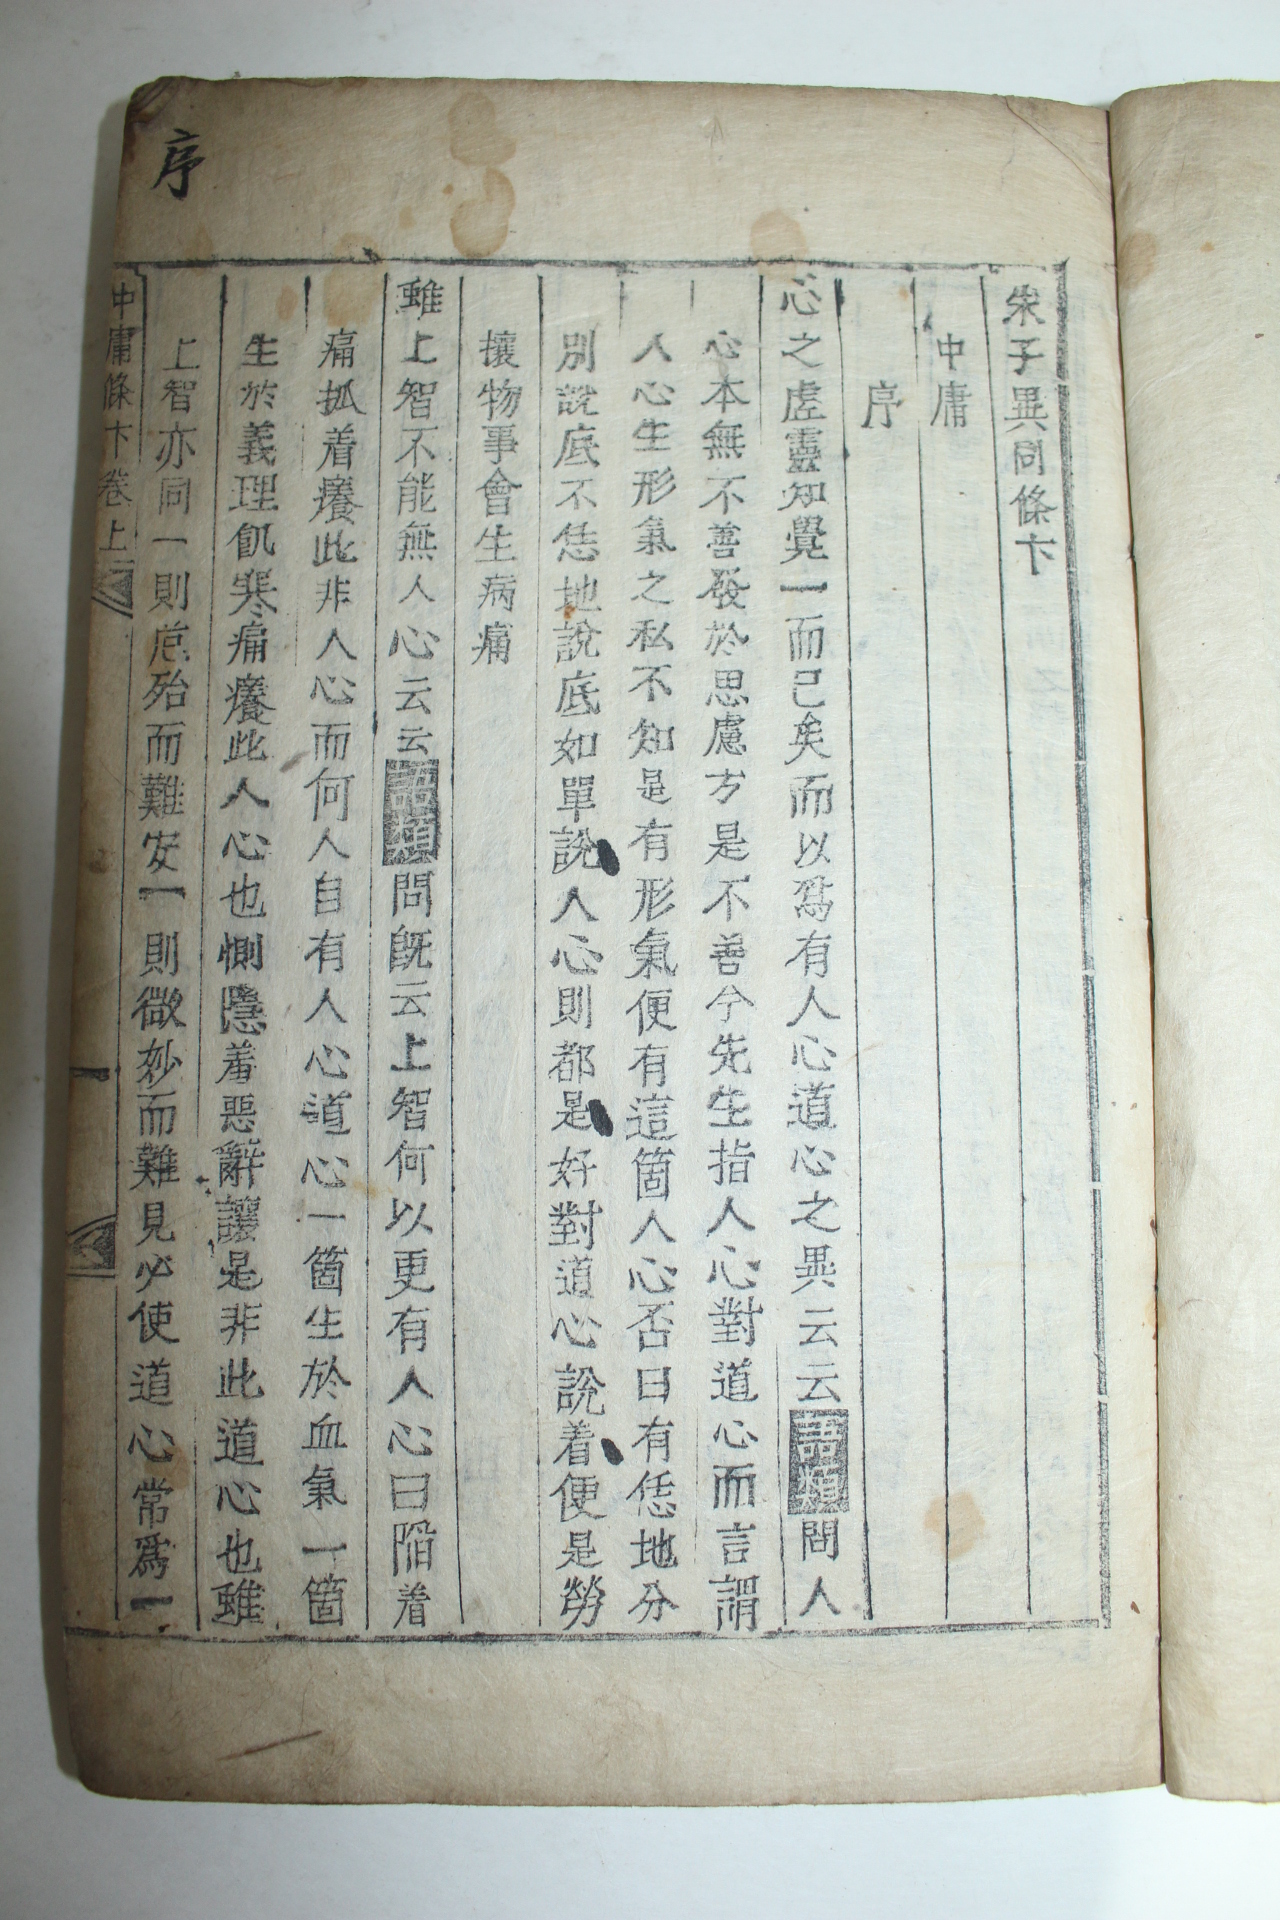 序
朱子異同條卞
中庸
序
心之虛靈知覺一而已矣而以爲有人心道心之異云云語類問人
心本無不善發於思慮方是不善今先生指人心對道心而言謂
人心生形氣之私不知是有形氣便有這箇人心否曰有恁地分
別說底不恁地說底如單說人心則都是好對道心說着便是勞
攘物事會生病痛
雖上智不能無人心云云語類問旣云上智何以更有人心曰陷着
痛抓着癢此非人心而何人自有人心道心一箇生於血氣一箇
生於義理飢寒痛癢此人心也惻隱羞惡辭讓是非此道心也雖
上智亦同一則危殆而難安一則微妙而難見必使道心常爲一
中庸條卞卷上 一